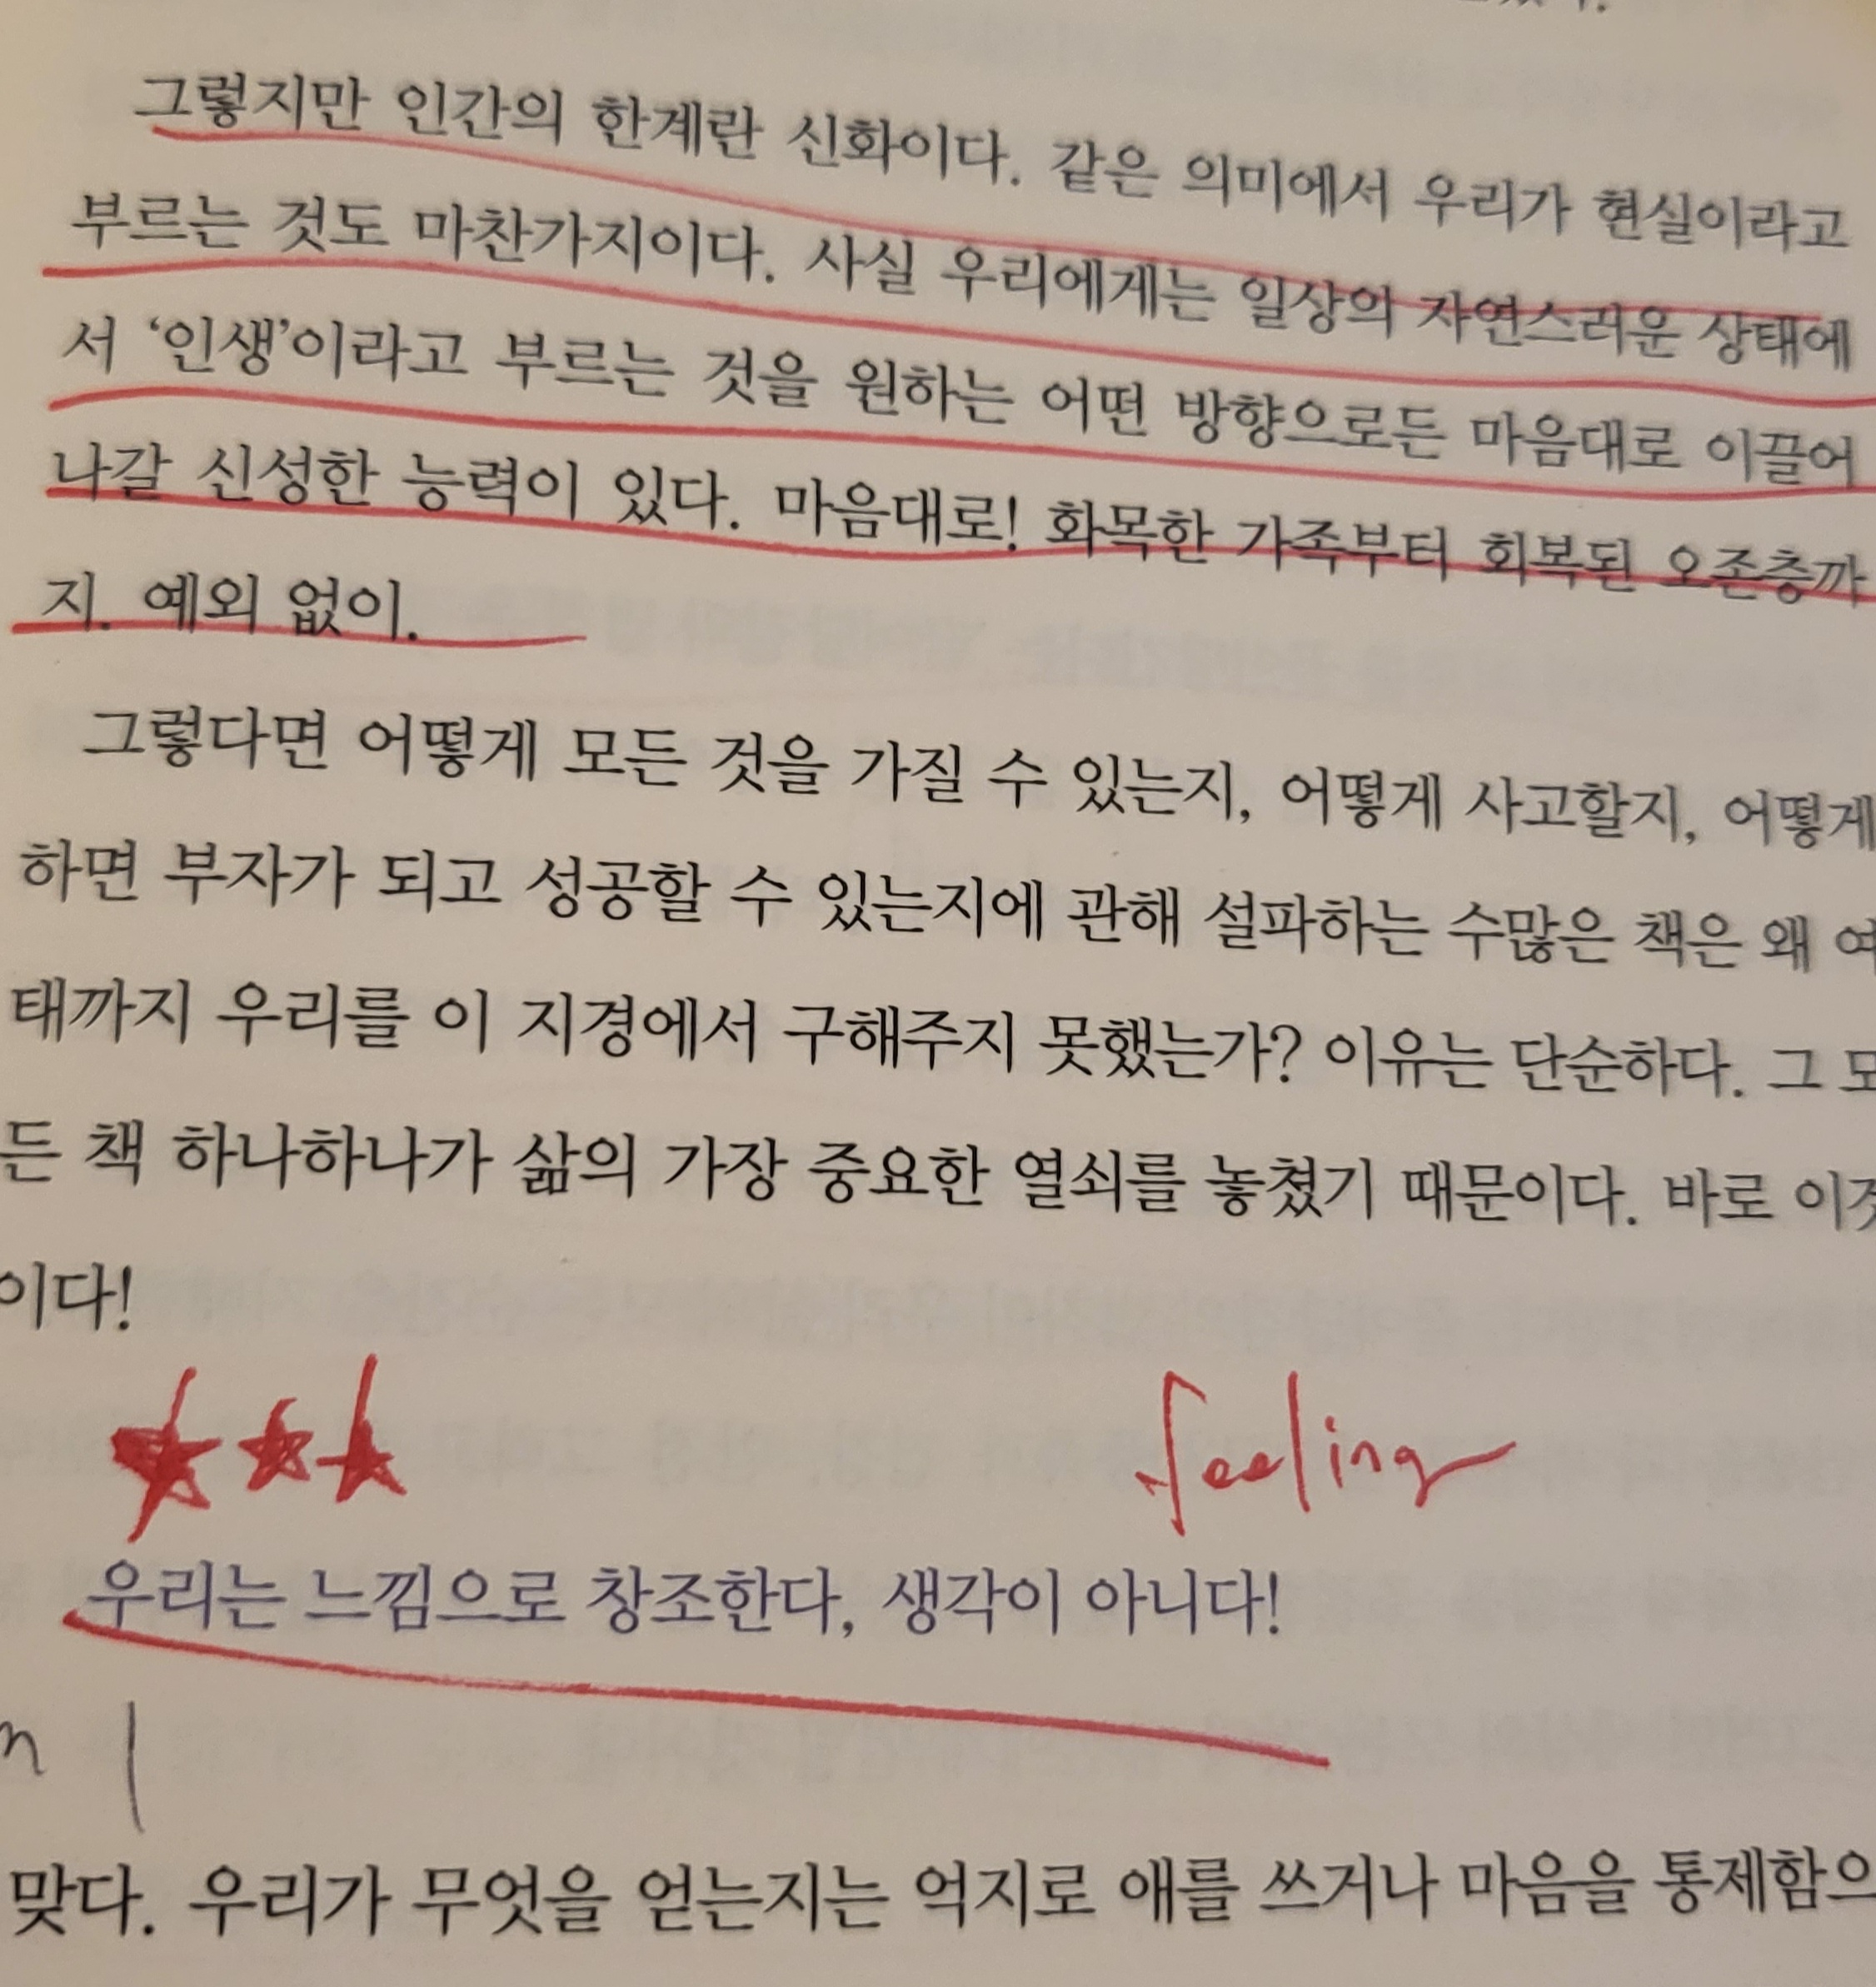 그렇지만 인간의 한계란 신화이다. 같은 의미에서 우리가 현실이라고
부르는 것도 마찬가지이다. 사실 우리에게는 일상의 자연스러운 상태에
서 ‘인생’이라고 부르는 것을 원하는 어떤 방향으로든 마음대로 이끌어
나갈 신성한 능력이 있다. 마음대로! 화목한 가족부터 회복된 오존층까
지. 예외 없이.
그렇다면 어떻게 모든 것을 가질 수 있는지, 어떻게 사고할지, 어떻게
하면 부자가 되고 성공할 수 있는지에 관해 설파하는 수많은 책은 왜 여
태까지 우리를 이 지경에서 구해주지 못했는가? 이유는 단순하다. 그 모
든 책 하나하나가 삶의 가장 중요한 열쇠를 놓쳤기 때문이다. 바로 이것
이다!
feeling
우리는 느낌으로 창조한다, 생각이 아니다!
n
맞다. 우리가 무엇을 얻는지는 억지로 애를 쓰거나 마음을 통제함으